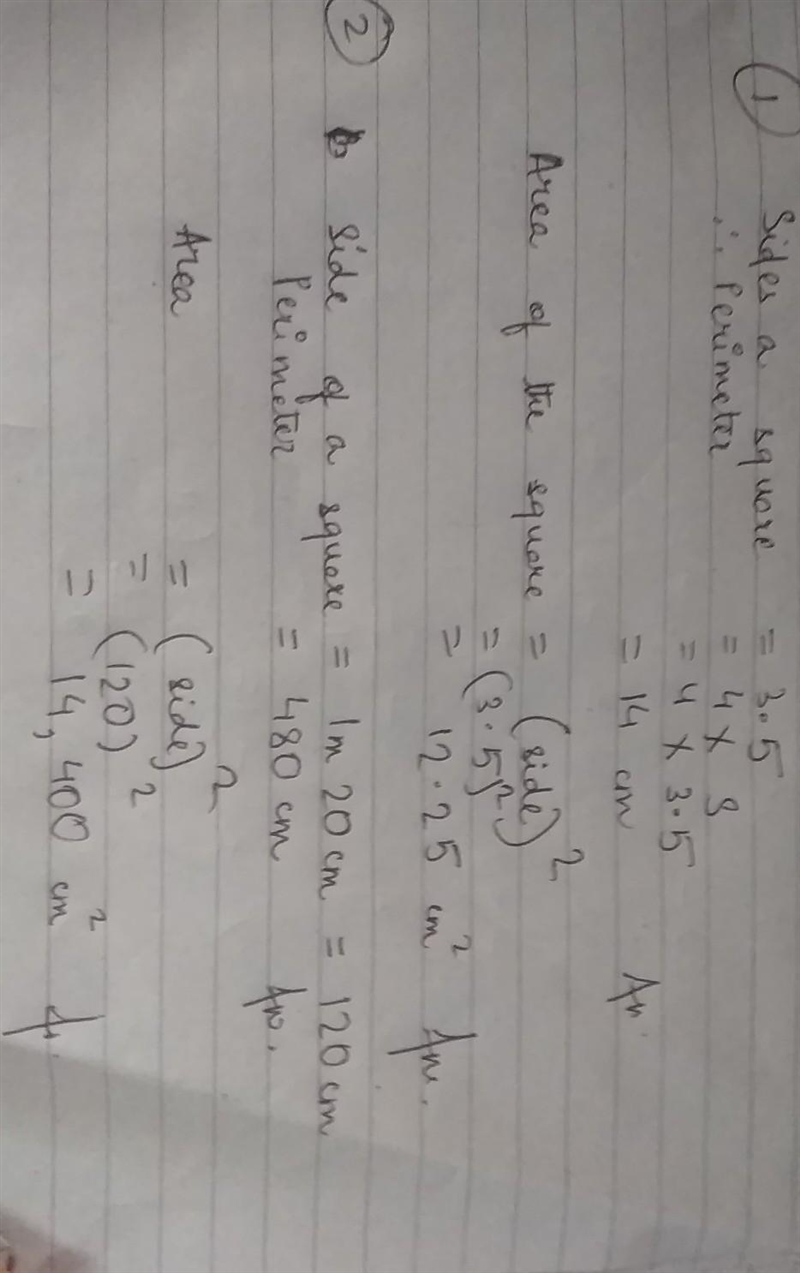 ① Sides a square = 3.5
∴ Perimeter = 4 × s
= 4 × 3.5
= 14 cm An.
Area of the square = (side)²
= (3.5)²
= 12.25 cm² Ans.
② side of a square = 1m 20 cm = 120 cm
Perimeter = 480 cm Ans.
Area = (side)²
= (120)²
= 14,400 cm² A.